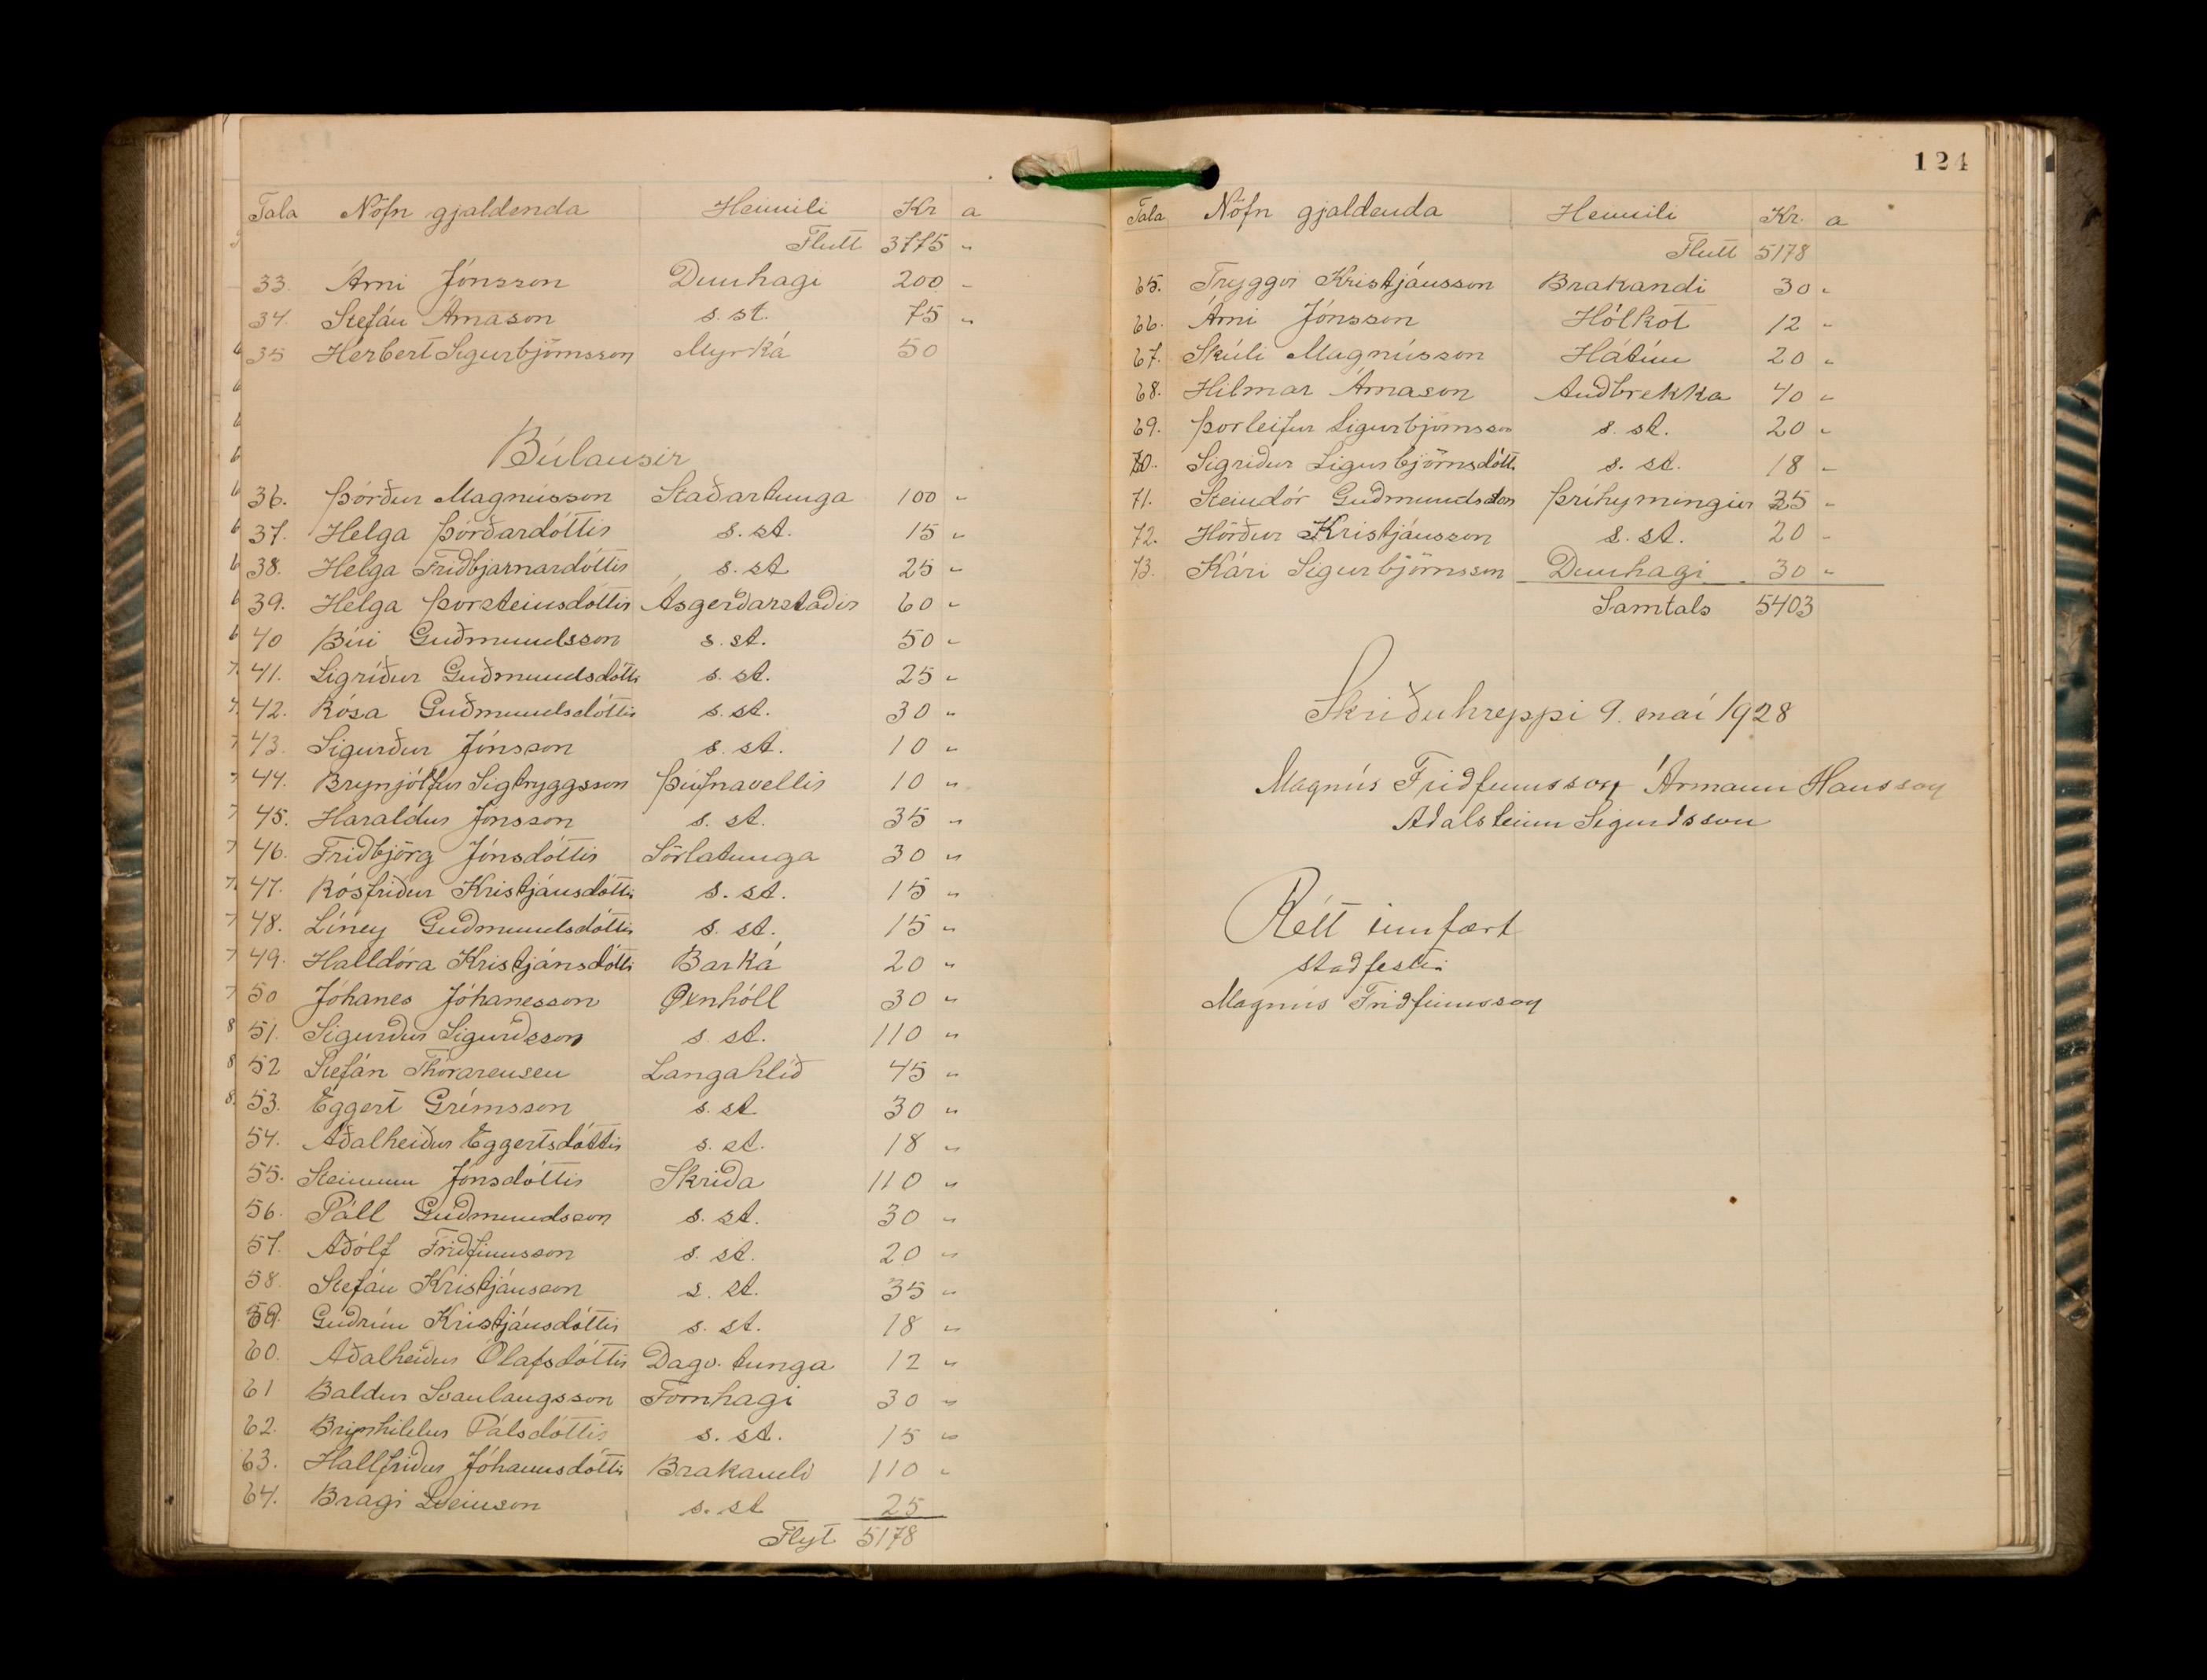 Tala Nöfn gjaldenda Heimili Kr a
Flutt 3775 "
33. Árni Jónsson Dunhagi 200 "
34. Stefán Árnason s. st. 75 "
35 Herbert Sigurbjörnsson Myrká 50
Búlausir
36. Þórður Magnússon Staðartunga 100 "
37. Helga Þórðardóttir s. st. 15 "
38. Helga Friðbjarnardóttir s. st 25 "
39. Helga Þorsteinsdóttir Ásgerðarstaðir 60 "
40 Búi Guðmundsson s. st. 50 "
41. Sigríður Guðmundsdótti s. st. 25 "
42. Rósa Guðmundsdóttir s. st. 30 "
43. Sigurður Jónsson s. st. 10 "
44. Brynjólfur Sigtryggsson Þúfnavellir 10 "
45. Haraldur Jónsson s. st. 35 "
46. Friðbjörg Jónsdóttir Sörlatunga 30 "
47. Rósfríður Kristjánsdóttir s. st. 15 "
48. Líney Guðmundsdóttir s. st. 15 "
49. Halldóra Kristjánsdótti Barká 20 "
50 Jóhanes Jóhanesson Öxnhóll 30 "
51. Sigurður Sigurðsson s. st. 110 "
52 Stefán Thorarensen Langahlíð 45 "
53. Eggert Grímsson s. st 30 "
54. Aðalheiður Eggertsdóttir s. st. 18 "
55. Steinunn Jónsdóttir Skriða 110 "
56. Páll Guðmundsson s. st. 30 "
57. Aðólf Friðfinnsson s. st. 20 "
58. Stefán Kristjánsson s. st. 35 "
59. Guðrún Kristjánsdóttir s. st. 18 "
60. Aðalheiður Ólafsdóttir Dagv. tunga 12 "
61 Baldur Svanlaugsson Fornhagi 30 "
62. Brynhildur Pálsdóttir s. st. 15 "
63. Hallfríður Jóhannsdóttir Brakandi 110 "
64. Bragi Sveinson s. st 25
Flyt 5178
124
Tala Nöfn gjaldenda Heimili Kr. a
Flutt 5178
65. Tryggvi Kristjánsson Brakandi 30 "
66. Árni Jónsson Hólkot 12 "
67. Skúli Magnússon Hátún 20 "
68. Hilmar Árnason Auðbrekka 40 "
69. Þorleifur Sigurbjörnsson s. st. 20 "
70. Sigríður Sigurbjörnsdótti s. st. 18 "
71. Steindór Guðmundsson Þríhyrningur 35 "
72. Hörður Kristjánsson s. st. 20 "
73. Kári Sigurbjörnsson Dunhagi 30 "
Samtals 5403
Skriðuhreppi 9. maí 1928
Magnús Friðfinnsson Ármann Hansson
Aðalsteinn Sigurðsson
Rétt innfært
staðfestir
Magnús Friðfinnsson